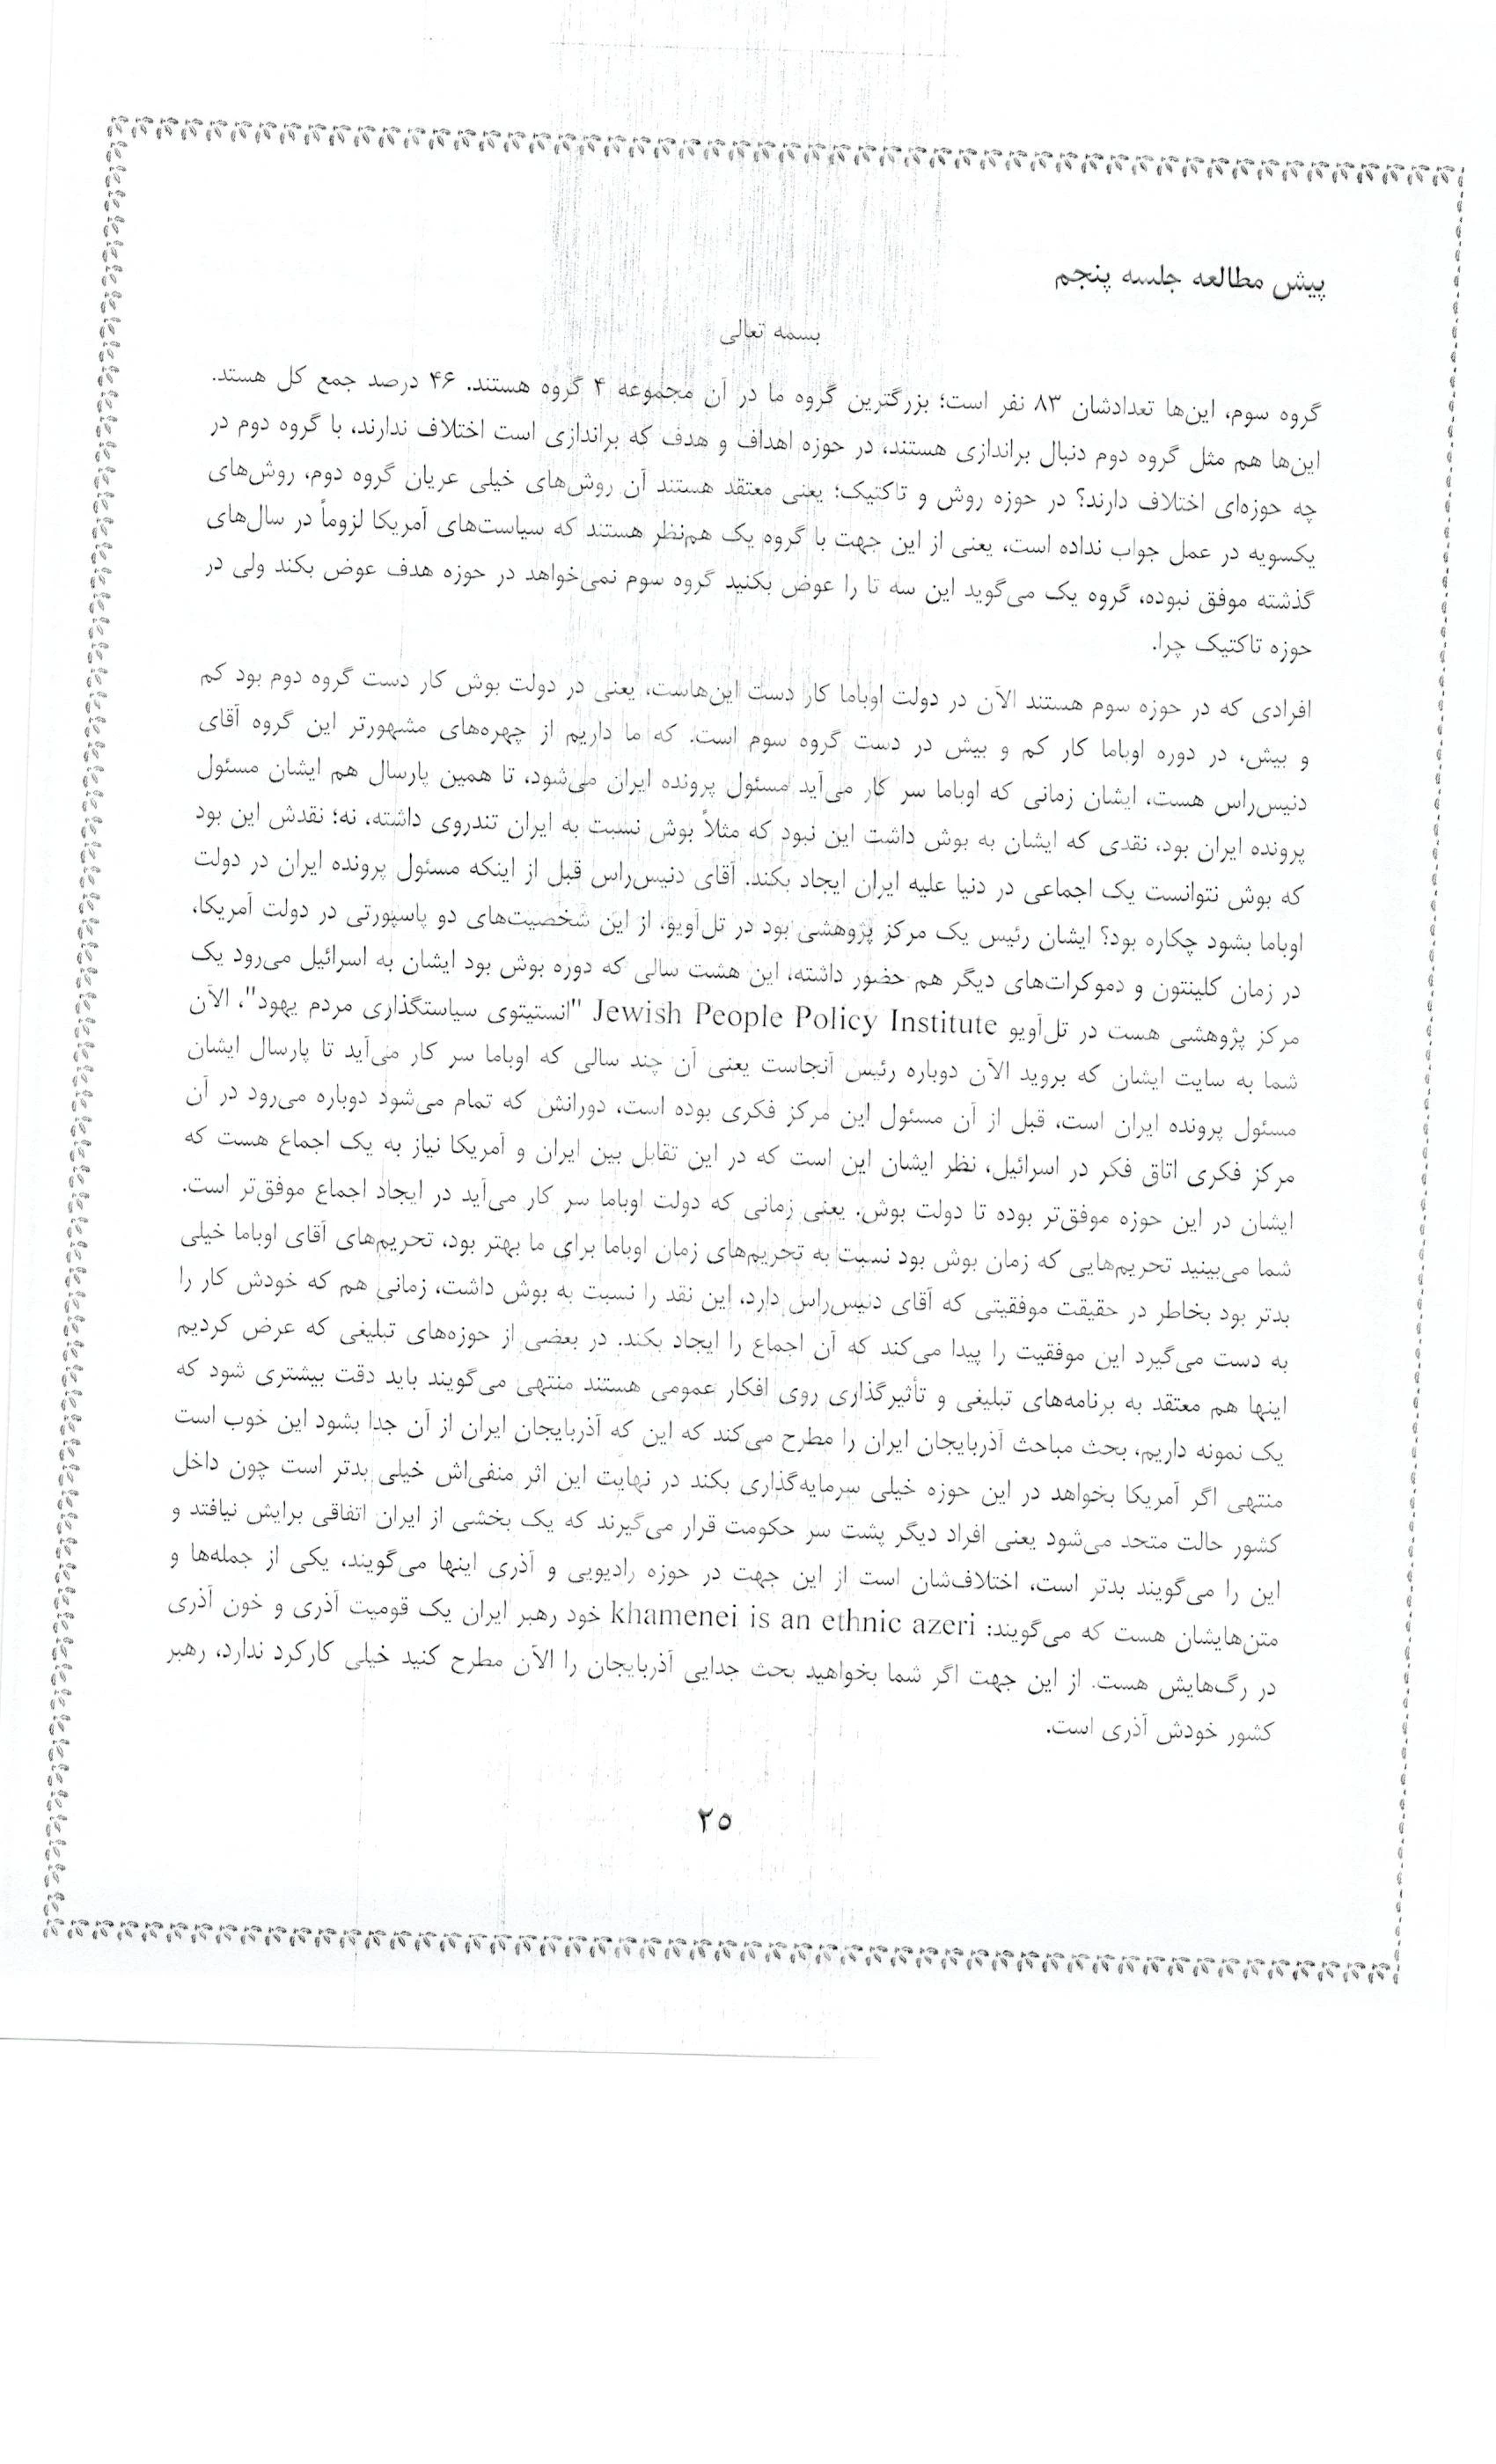 پیش مطالعه جلسه پنجم
بسمه تعالی
گروه سوم، این‌ها تعدادشان ۸۳ نفر است؛ بزرگترین گروه ما در آن مجموعه ۴ گروه هستند. ۴۶ درصد جمع کل هستد.
این‌ها هم مثل گروه دوم دنبال براندازی هستند، در حوزه اهداف و هدف که براندازی است اختلاف ندارند، با گروه دوم در
چه حوزه‌ای اختلاف دارند؟ در حوزه روش و تاکتیک؛ یعنی معتقد هستند آن روش‌های خیلی عریان گروه دوم، روش‌های
یکسویه در عمل جواب نداده است، یعنی از این جهت با گروه یک هم‌نظر هستند که سیاست‌های آمریکا لزوماً در سال‌های
گذشته موفق نبوده، گروه یک می‌گوید این سه تا را عوض بکنید گروه سوم نمی‌خواهد در حوزه هدف عوض بکند ولی در
حوزه تاکتیک چرا.
افرادی که در حوزه سوم هستند الآن در دولت اوباما کار دست این‌هاست، یعنی در دولت بوش کار دست گروه دوم بود کم
و بیش، در دوره اوباما کار کم و بیش در دست گروه سوم است. که ما داریم از چهره‌های مشهورتر این گروه آقای
دنیس‌راس هست، ایشان زمانی که اوباما سر کار می‌آید مسئول پرونده ایران می‌شود، تا همین پارسال هم ایشان مسئول
پرونده ایران بود، نقدی که ایشان به بوش داشت این نبود که مثلاً بوش نسبت به ایران تندروی داشته، نه؛ نقدش این بود
که بوش نتوانست یک اجماعی در دنیا علیه ایران ایجاد بکند. آقای دنیس‌راس قبل از اینکه مسئول پرونده ایران در دولت
اوباما بشود چکاره بود؟ ایشان رئیس یک مرکز پژوهشی بود در تل‌آویو، از این شخصیت‌های دو پاسپورتی در دولت آمریکا،
در زمان کلینتون و دموکرات‌های دیگر هم حضور داشته، این هشت سالی که دوره بوش بود ایشان به اسرائیل می‌رود یک
مرکز پژوهشی هست در تل‌آویو Jewish People Policy Institute "انستیتوی سیاستگذاری مردم یهود"، الآن
شما به سایت ایشان که بروید الآن دوباره رئیس آنجاست یعنی آن چند سالی که اوباما سر کار می‌آید تا پارسال ایشان
مسئول پرونده ایران است، قبل از آن مسئول این مرکز فکری بوده است، دورانش که تمام می‌شود دوباره می‌رود در آن
مرکز فکری اتاق فکر در اسرائیل، نظر ایشان این است که در این تقابل بین ایران و آمریکا نیاز به یک اجماع هست که
ایشان در این حوزه موفق‌تر بوده تا دولت بوش. یعنی زمانی که دولت اوباما سر کار می‌آید در ایجاد اجماع موفق‌تر است.
شما می‌بینید تحریم‌هایی که زمان بوش بود نسبت به تحریم‌های زمان اوباما برای ما بهتر بود، تحریم‌های آقای اوباما خیلی
بدتر بود بخاطر در حقیقت موفقیتی که آقای دنیس‌راس دارد، این نقد را نسبت به بوش داشت، زمانی هم که خودش کار را
به دست می‌گیرد این موفقیت را پیدا می‌کند که آن اجماع را ایجاد بکند. در بعضی از حوزه‌های تبلیغی که عرض کردیم
اینها هم معتقد به برنامه‌های تبلیغی و تأثیرگذاری روی افکار عمومی هستند منتهی می‌گویند باید دقت بیشتری شود که
یک نمونه داریم، بحث مباحث آذربایجان ایران را مطرح می‌کند که این که آذربایجان ایران از آن جدا بشود این خوب است
منتهی اگر آمریکا بخواهد در این حوزه خیلی سرمایه‌گذاری بکند در نهایت این اثر منفی‌اش خیلی بدتر است چون داخل
کشور حالت متحد می‌شود یعنی افراد دیگر پشت سر حکومت قرار می‌گیرند که یک بخشی از ایران اتفاقی برایش نیافتد و
این را می‌گویند بدتر است، اختلاف‌شان است از این جهت در حوزه رادیویی و آذری اینها می‌گویند، یکی از جمله‌ها و
متن‌هایشان هست که می‌گویند: khamenei is an ethnic azeri خود رهبر ایران یک قومیت آذری و خون آذری
در رگ‌هایش هست. از این جهت اگر شما بخواهید بحث جدایی آذربایجان را الآن مطرح کنید خیلی کارکرد ندارد، رهبر
کشور خودش آذری است.
۲۵